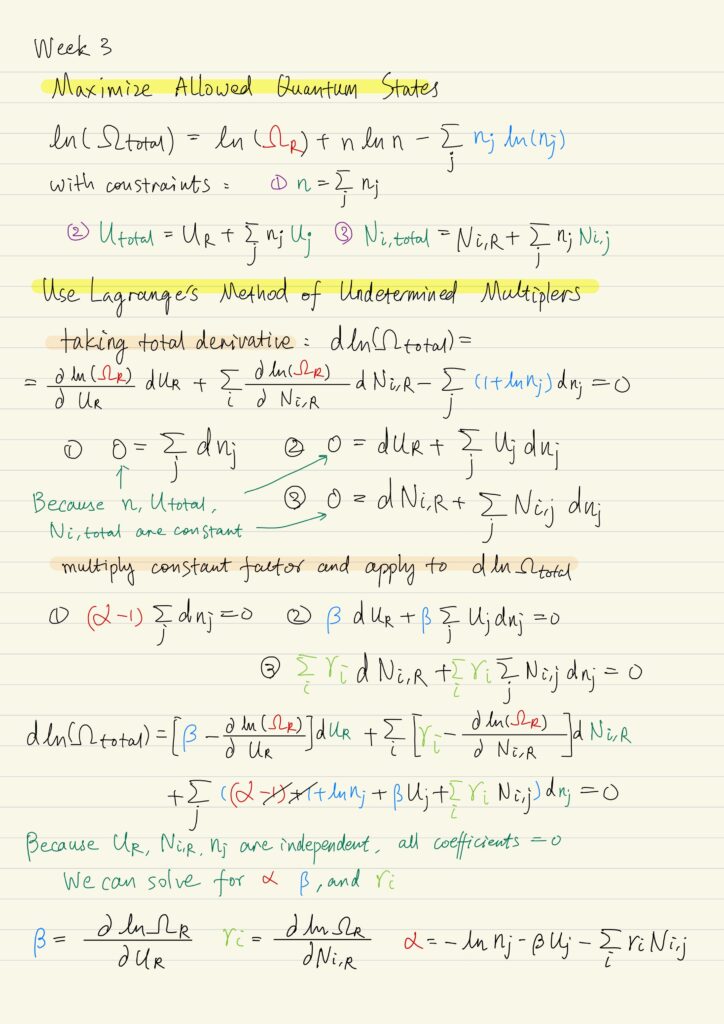 Week 3
Maximize Allowed Quantum States
ln(Ωtotal) = ln(ΩR) + n ln n − Σj nj ln(nj)
with constraints: ① n = Σj nj
② Utotal = UR + Σj nj Uj ③ Ni,total = Ni,R + Σj nj Ni,j
Use Lagrange's Method of Undetermined Multiplers
taking total derivative: d ln(Ωtotal) =
= ∂ ln(ΩR)/∂ UR dUR + Σi ∂ ln(ΩR)/∂ Ni,R d Ni,R − Σj (1+ln nj) dnj = 0
① 0 = Σj dnj ② 0 = dUR + Σj Uj dnj
Because n, Utotal,
③ 0 = d Ni,R + Σj Ni,j dnj
Ni,total are constant
multiply constant factor and apply to d ln Ωtotal
① (α−1) Σj dnj = 0 ② β dUR + β Σj Uj dnj = 0
③ Σi γi d Ni,R + Σi γi Σj Ni,j dnj = 0
d ln(Ωtotal) = [β − ∂ ln(ΩR)/∂ UR] dUR + Σi [γi − ∂ ln(ΩR)/∂ Ni,R] d Ni,R
+ Σj ((α−1)+1+ln nj + βUj + Σi γi Ni,j) dnj = 0
Because UR, Ni,R, nj are independent, all coefficients = 0
We can solve for α β, and γi
β = ∂ ln ΩR/∂ UR γi = ∂ ln ΩR/∂Ni,R α = − ln nj − βUj − Σi γi Ni,j